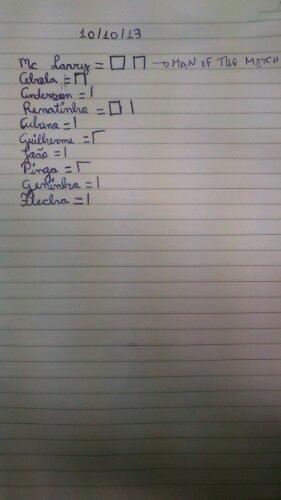 10/10/13
Mc Larry = □ ⊓ → MAN OF THE MATCH
Cebola = ⊓
Anderson = |
Renatinho = □ |
Cubano = |
Guilherme = Γ
João = |
Pinga = Γ
Geninho = |
Flecha = |